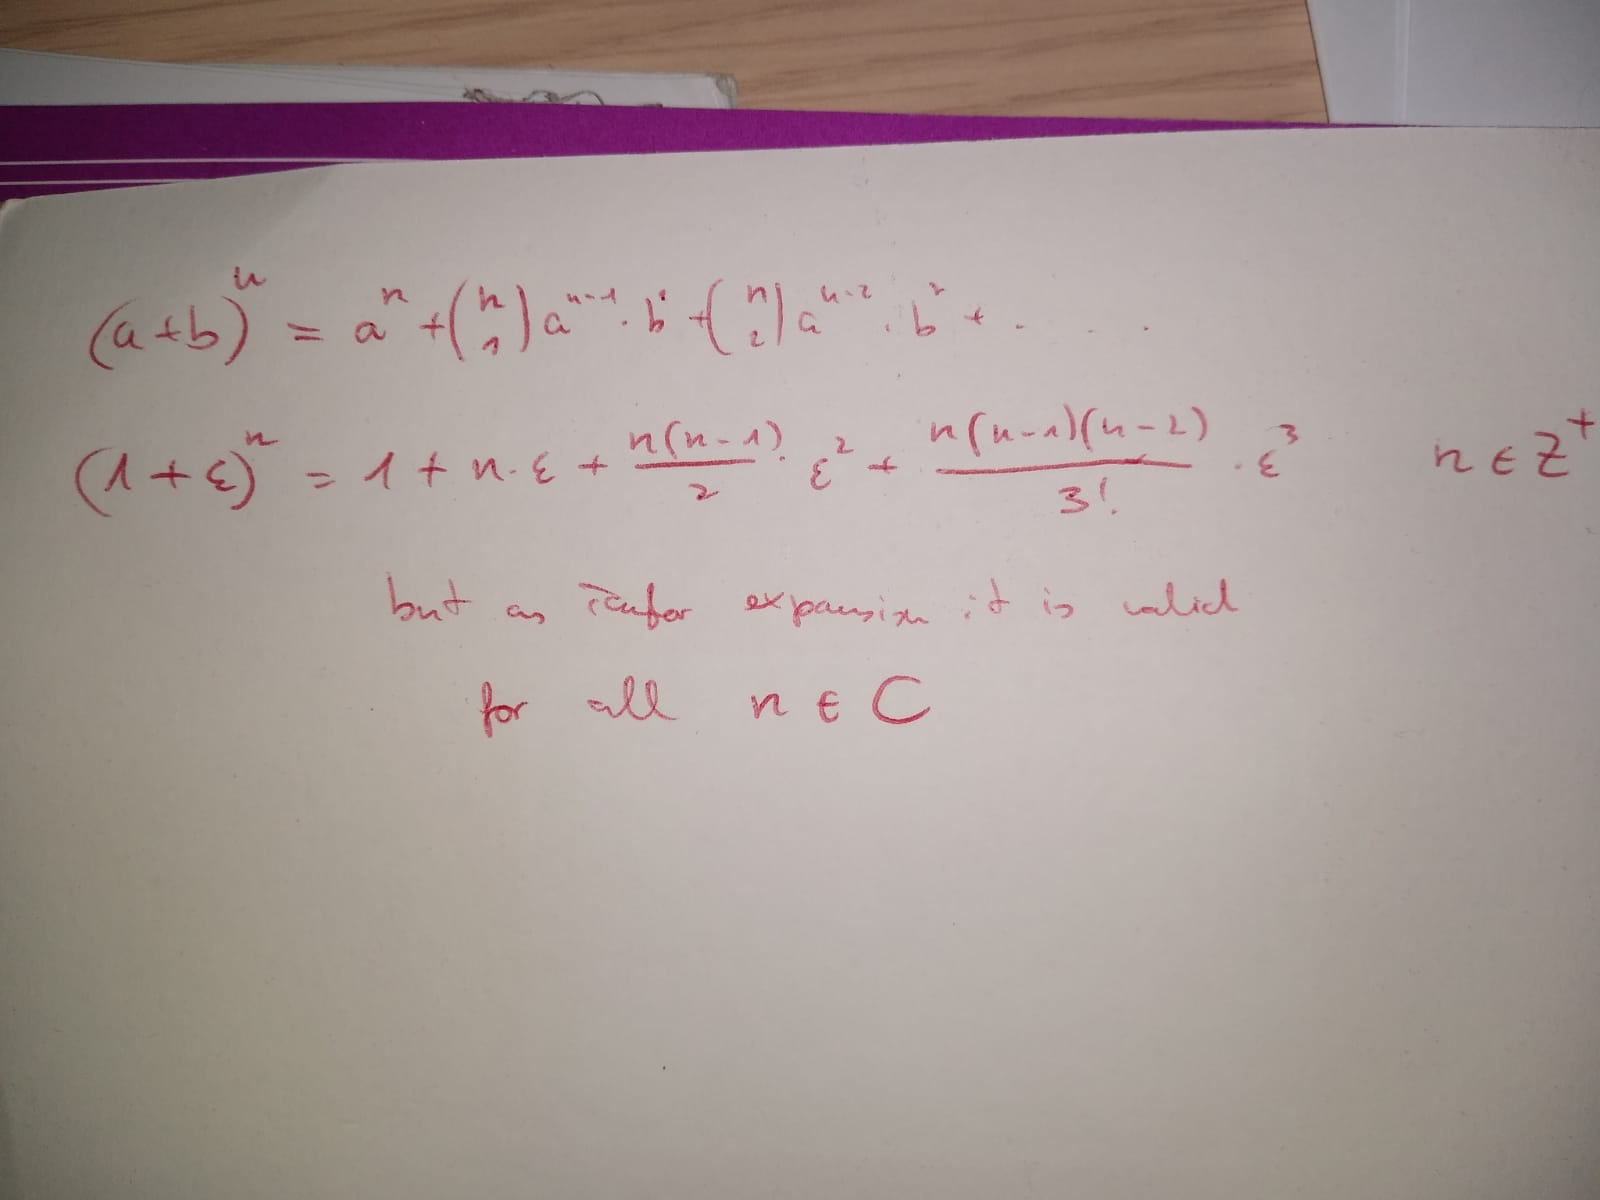 (a+b)ⁿ = aⁿ + (n 1) aⁿ⁻¹ · b¹ + (n 2) aⁿ⁻² · b² + . . .
(1+ε)ⁿ = 1 + n·ε + n(n-1)/2 · ε² + n(n-1)(n-2)/3! · ε³ n ∈ Z⁺
but as Taylor expansion it is valid
for all n ∈ C